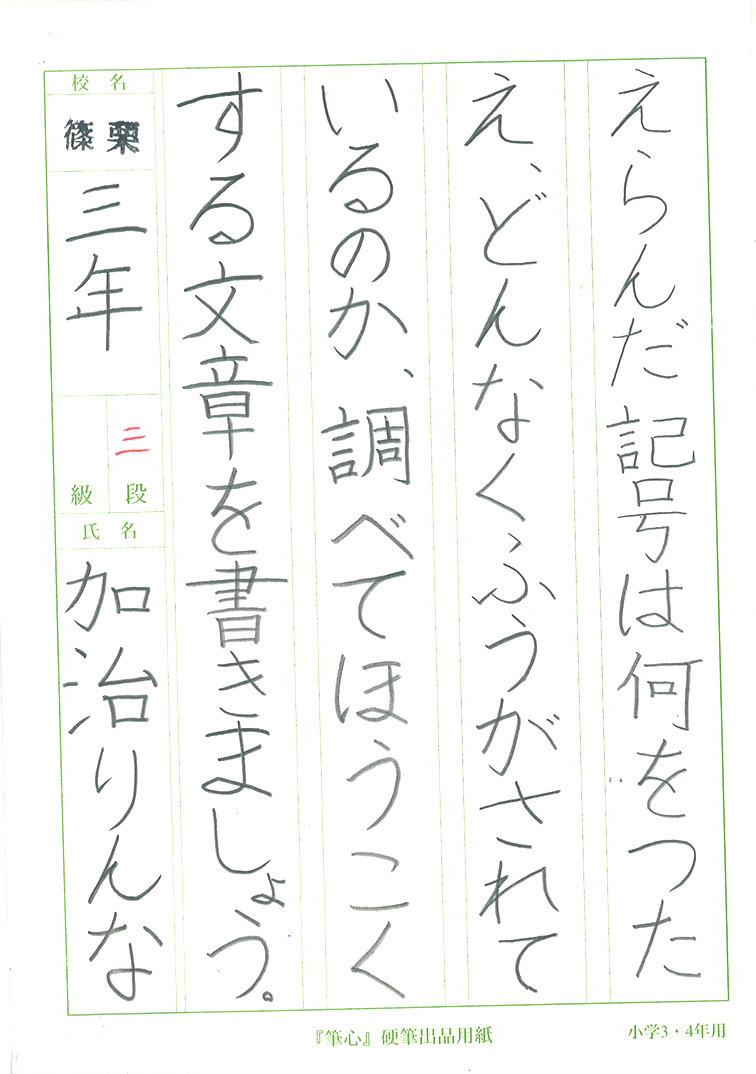 えらんだ記号は何をつた
え、どんなくふうがされて
いるのか、調べてほうこく
する文章を書きましょう。
校名
篠栗
三年
三段
級
氏名
加治りんな
『筆心』硬筆出品用紙
小学3・4年用